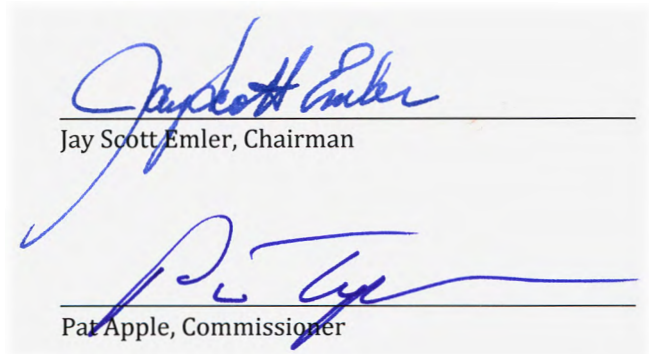 Jay Scott Emler
Jay Scott Emler, Chairman
Pat Apple, Commissioner